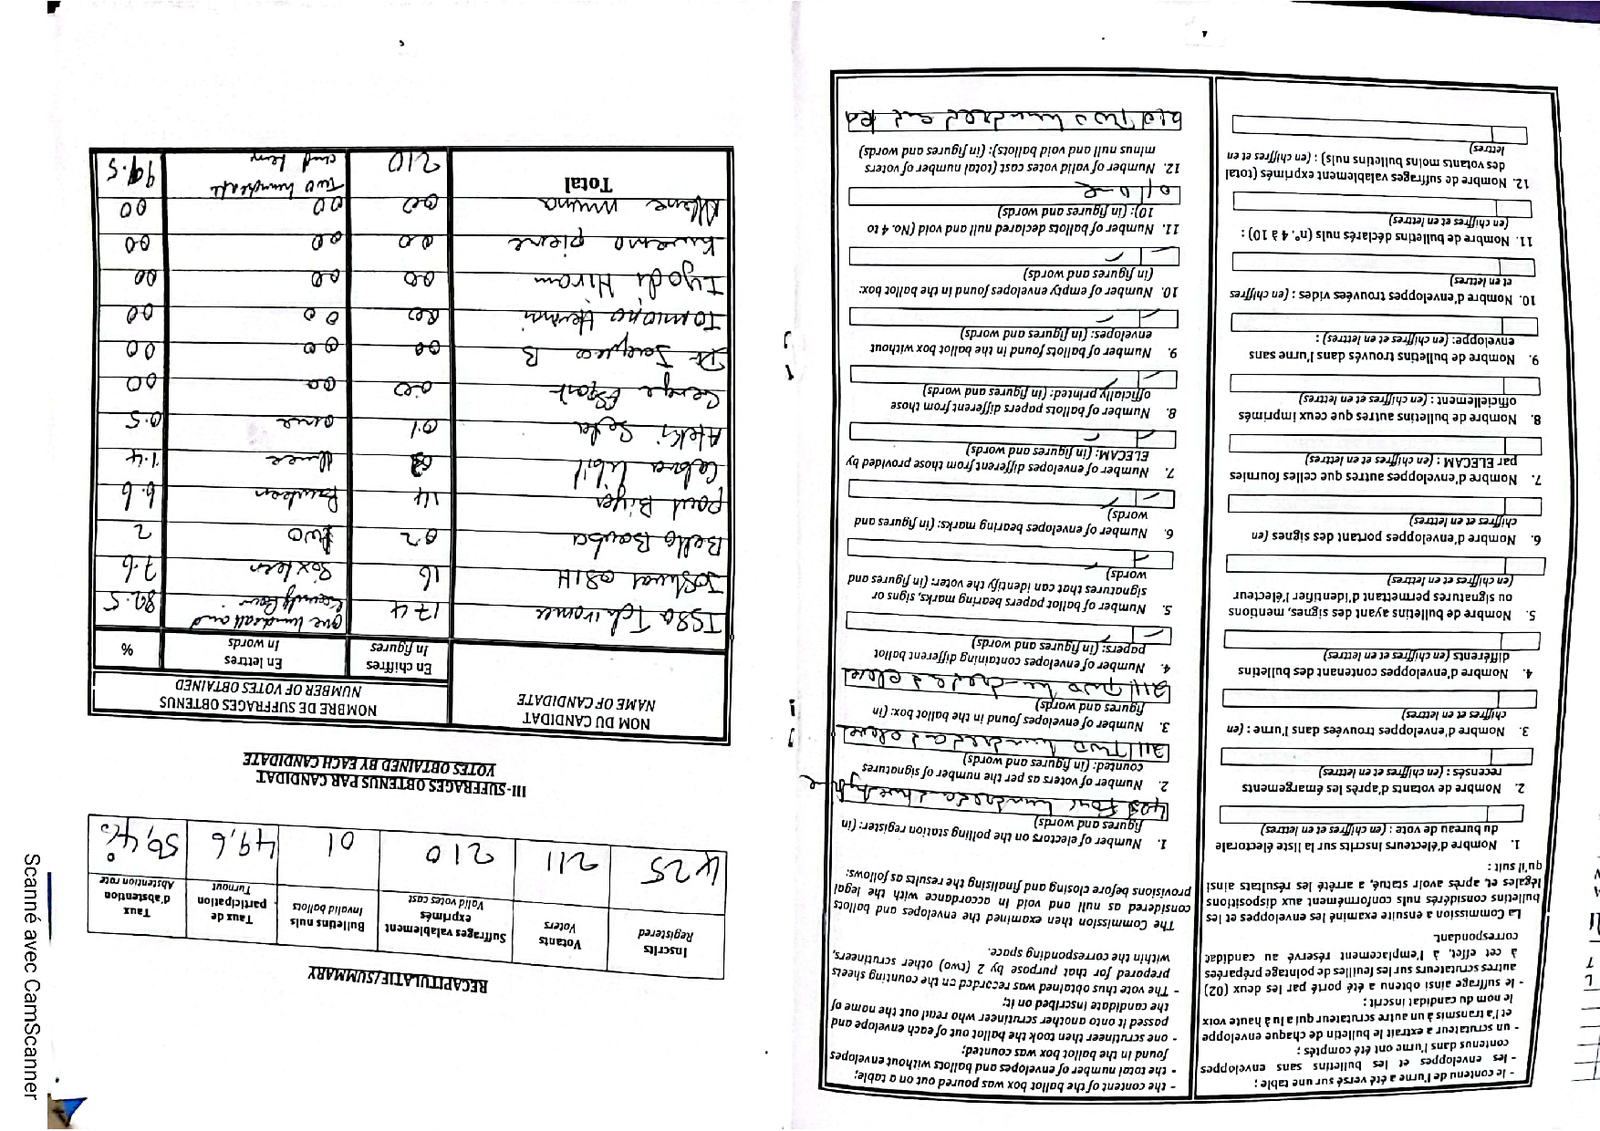 - le contenu de l'urne a été versé sur une table ;
- les enveloppes et les bulletins sans enveloppes
contenus dans l'urne ont été comptés ;
- un scrutateur a extrait le bulletin de chaque enveloppe
et l'a transmis à un autre scrutateur qui a lu à haute voix
le nom du candidat inscrit ;
- le suffrage ainsi obtenu a été porté par les deux (02)
autres scrutateurs sur les feuilles de pointage préparées
à cet effet, à l'emplacement réservé au candidat
correspondant.
La Commission a ensuite examiné les enveloppes et les
bulletins considérés nuls conformément aux dispositions
légales et, après avoir statué, a arrêté les résultats ainsi
qu'il suit :
1. Nombre d'électeurs inscrits sur la liste électorale
du bureau de vote : (en chiffres et en lettres)
2. Nombre de votants d'après les émargements
recensés : (en chiffres et en lettres)
3. Nombre d'enveloppes trouvées dans l'urne : (en
chiffres et en lettres)
4. Nombre d'enveloppes contenant des bulletins
différents (en chiffres et en lettres)
5. Nombre de bulletins ayant des signes, mentions
ou signatures permettant d'identifier l'électeur
(en chiffres et en lettres)
6. Nombre d'enveloppes portant des signes (en
chiffres et en lettres)
7. Nombre d'enveloppes autres que celles fournies
par ELECAM : (en chiffres et en lettres)
8. Nombre de bulletins autres que ceux imprimés
officiellement : (en chiffres et en lettres)
9. Nombre de bulletins trouvés dans l'urne sans
enveloppe: (en chiffres et en lettres) :
10. Nombre d'enveloppes trouvées vides : (en chiffres
et en lettres)
11. Nombre de bulletins déclarés nuls (n°. 4 à 10) :
(en chiffres et en lettres)
12. Nombre de suffrages valablement exprimés (total
des votants moins bulletins nuls) : (en chiffres et en
lettres)
- the content of the ballot box was poured out on a table;
- the total number of envelopes and ballots without envelopes
found in the ballot box was counted;
- one scrutineer then took the ballot out of each envelope and
passed it onto another scrutineer who read out the name of
the candidate inscribed on it;
- The vote thus obtained was recorded on the counting sheets
prepared for that purpose by 2 (two) other scrutineers,
within the corresponding space.
The Commission then examined the envelopes and ballots
considered as null and void in accordance with the legal
provisions before closing and finalising the results as follows:
1. Number of electors on the polling station register: (in
figures and words)
425 Four hundred and twenty five
2. Number of voters as per the number of signatures
counted: (in figures and words)
211 Two hundred and eleven
3. Number of envelopes found in the ballot box: (in
figures and words)
211 Two hundred and eleven
4. Number of envelopes containing different ballot
papers: (in figures and words)
5. Number of ballot papers bearing marks, signs or
signatures that can identify the voter: (in figures and
words)
6. Number of envelopes bearing marks: (in figures and
words)
7. Number of envelopes different from those provided by
ELECAM: (in figures and words)
8. Number of ballot papers different from those
officially printed: (in figures and words)
9. Number of ballots found in the ballot box without
envelopes: (in figures and words)
10. Number of empty envelopes found in the ballot box:
(in figures and words)
11. Number of ballots declared null and void (No. 4 to
10): (in figures and words)
01 One
12. Number of valid votes cast (total number of voters
minus null and void ballots): (in figures and words)
210 Two hundred and ten
RECAPITULATIF/SUMMARY
Inscrits Registered | Votants Voters | Suffrages valablement exprimés Valid votes cast | Bulletins nuls Invalid ballots | Taux de participation Turnout | Taux d'abstention Abstention rate
425 | 211 | 210 | 01 | 49,6 | 50,4%
III-SUFFRAGES OBTENUS PAR CANDIDAT
VOTES OBTAINED BY EACH CANDIDATE
NOM DU CANDIDAT NAME OF CANDIDATE | NOMBRE DE SUFFRAGES OBTENUS NUMBER OF VOTES OBTAINED
En chiffres In figures | En lettres In words | %
Issa Tchiroma | 174 | one hundred and seventy four | 82.5
Joshua OSIH | 16 | Sixteen | 7.6
Bello Bouba | 02 | two | 2
Paul Biya | 14 | Fourteen | 6.6
Cabral Libii | 03 | three | 1.4
Ateki Seta | 01 | one | 0.5
George Espoir | 00 | 00 | 00
Dr Jacques B | 00 | 00 | 00
Tomaino Hermi | 00 | 00 | 00
Iyodi Hiram | 00 | 00 | 00
Kwemo pierre | 00 | 00 | 00
Akere muna | 00 | 00 | 00
Total | 210 | Two hundred and ten | 99.5
Scanné avec CamScanner